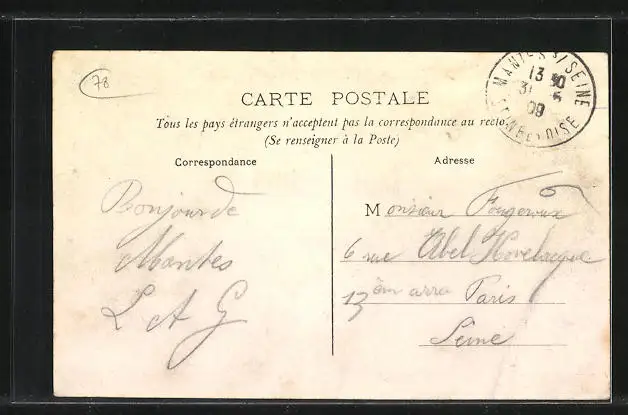 78
MANTES S/SEINE
13 30
31 - 5
09
SEINE-ET-OISE
CARTE POSTALE
Tous les pays étrangers n'acceptent pas la correspondance au recto
(Se renseigner à la Poste)
Correspondance
Adresse
Bonjour de
Mantes
L A G
Monsieur Fougeroux
6 rue Abel Hovelacque
13 èm arro Paris
Seine